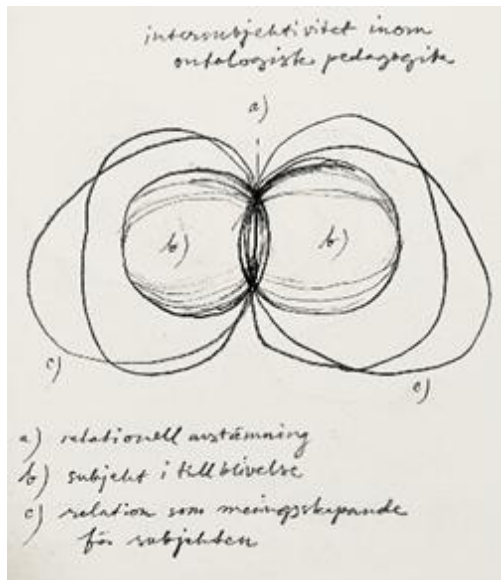 intersubjektivitet inom
ontologisk pedagogik
a)
b)
b)
c)
c)
a) relationell avstämning
b) subjekt i tillblivelse
c) relation som meningsskapande
för subjekten